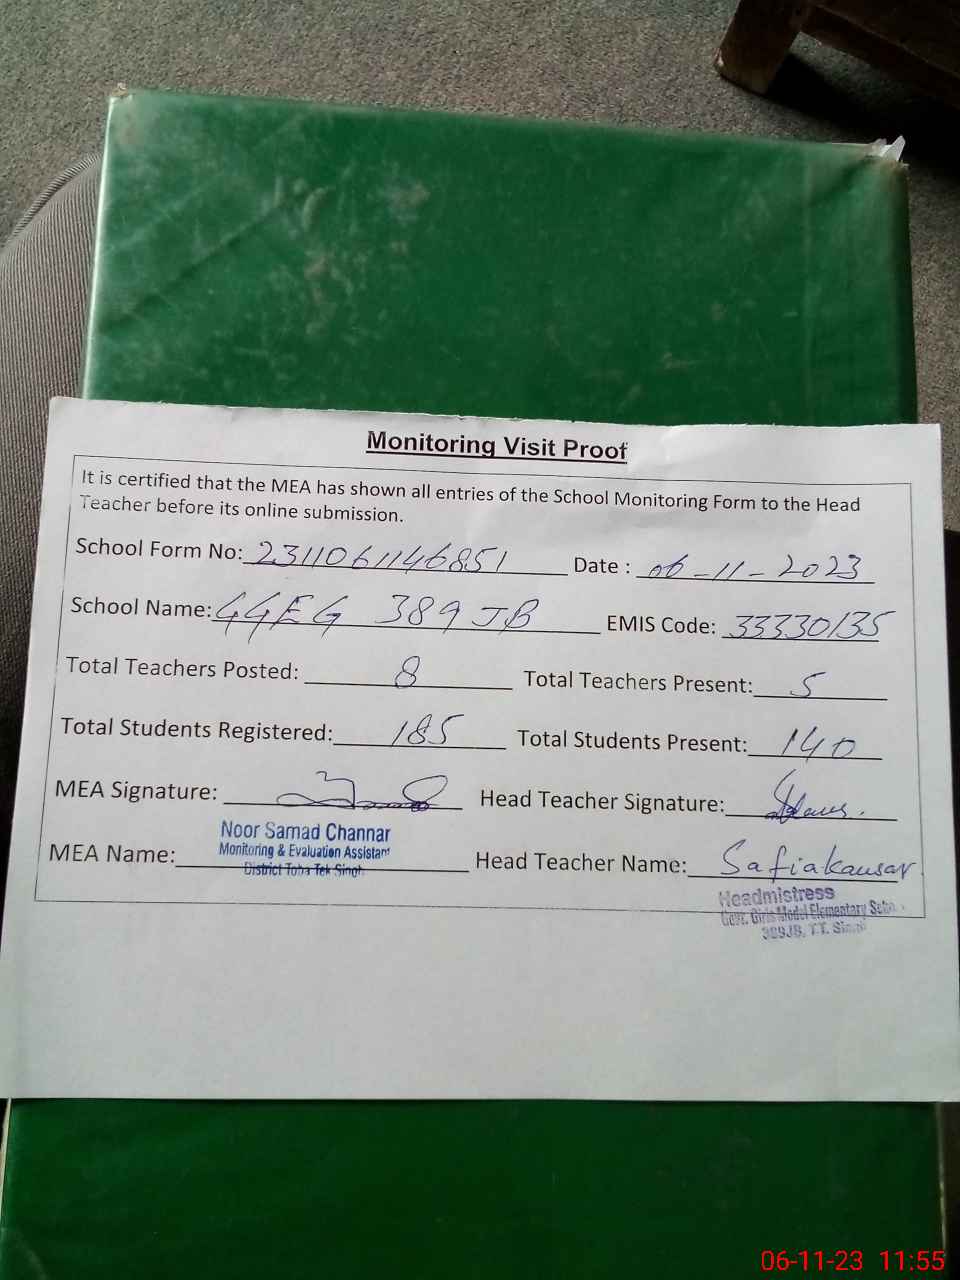 Monitoring Visit Proof
It is certified that the MEA has shown all entries of the School Monitoring Form to the Head
Teacher before its online submission.
School Form No: 2311061146851 Date : 06-11-2023
School Name: GGEG 389 JB EMIS Code: 33330135
Total Teachers Posted: 8 Total Teachers Present: 5
Total Students Registered: 185 Total Students Present: 140
MEA Signature: Head Teacher Signature:
Noor Samad Channar
Monitoring & Evaluation Assistant
District Toba Tek Singh
MEA Name: Head Teacher Name: Safia kausar
Headmistress
Govt. Girls Model Elementary
389JB, T.T. Singh
06-11-23 11:55